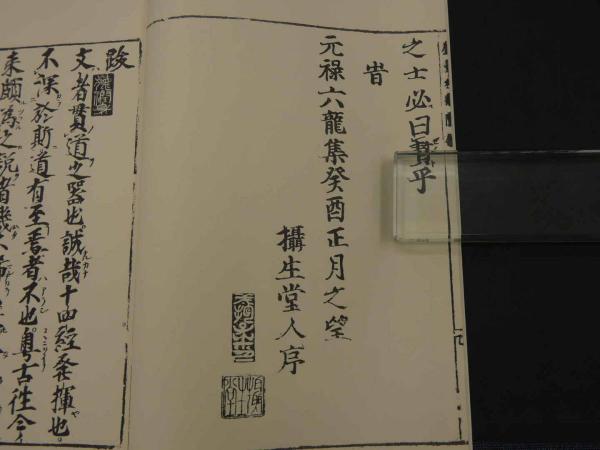 之士必曰
乎
旹
元禄六龍集癸酉正月之望
攝生堂人序
跋
文者貫道之器也誠哉十四經發揮也
不深於斯道有至焉者不也粤古徃今
来頗為之説者幾